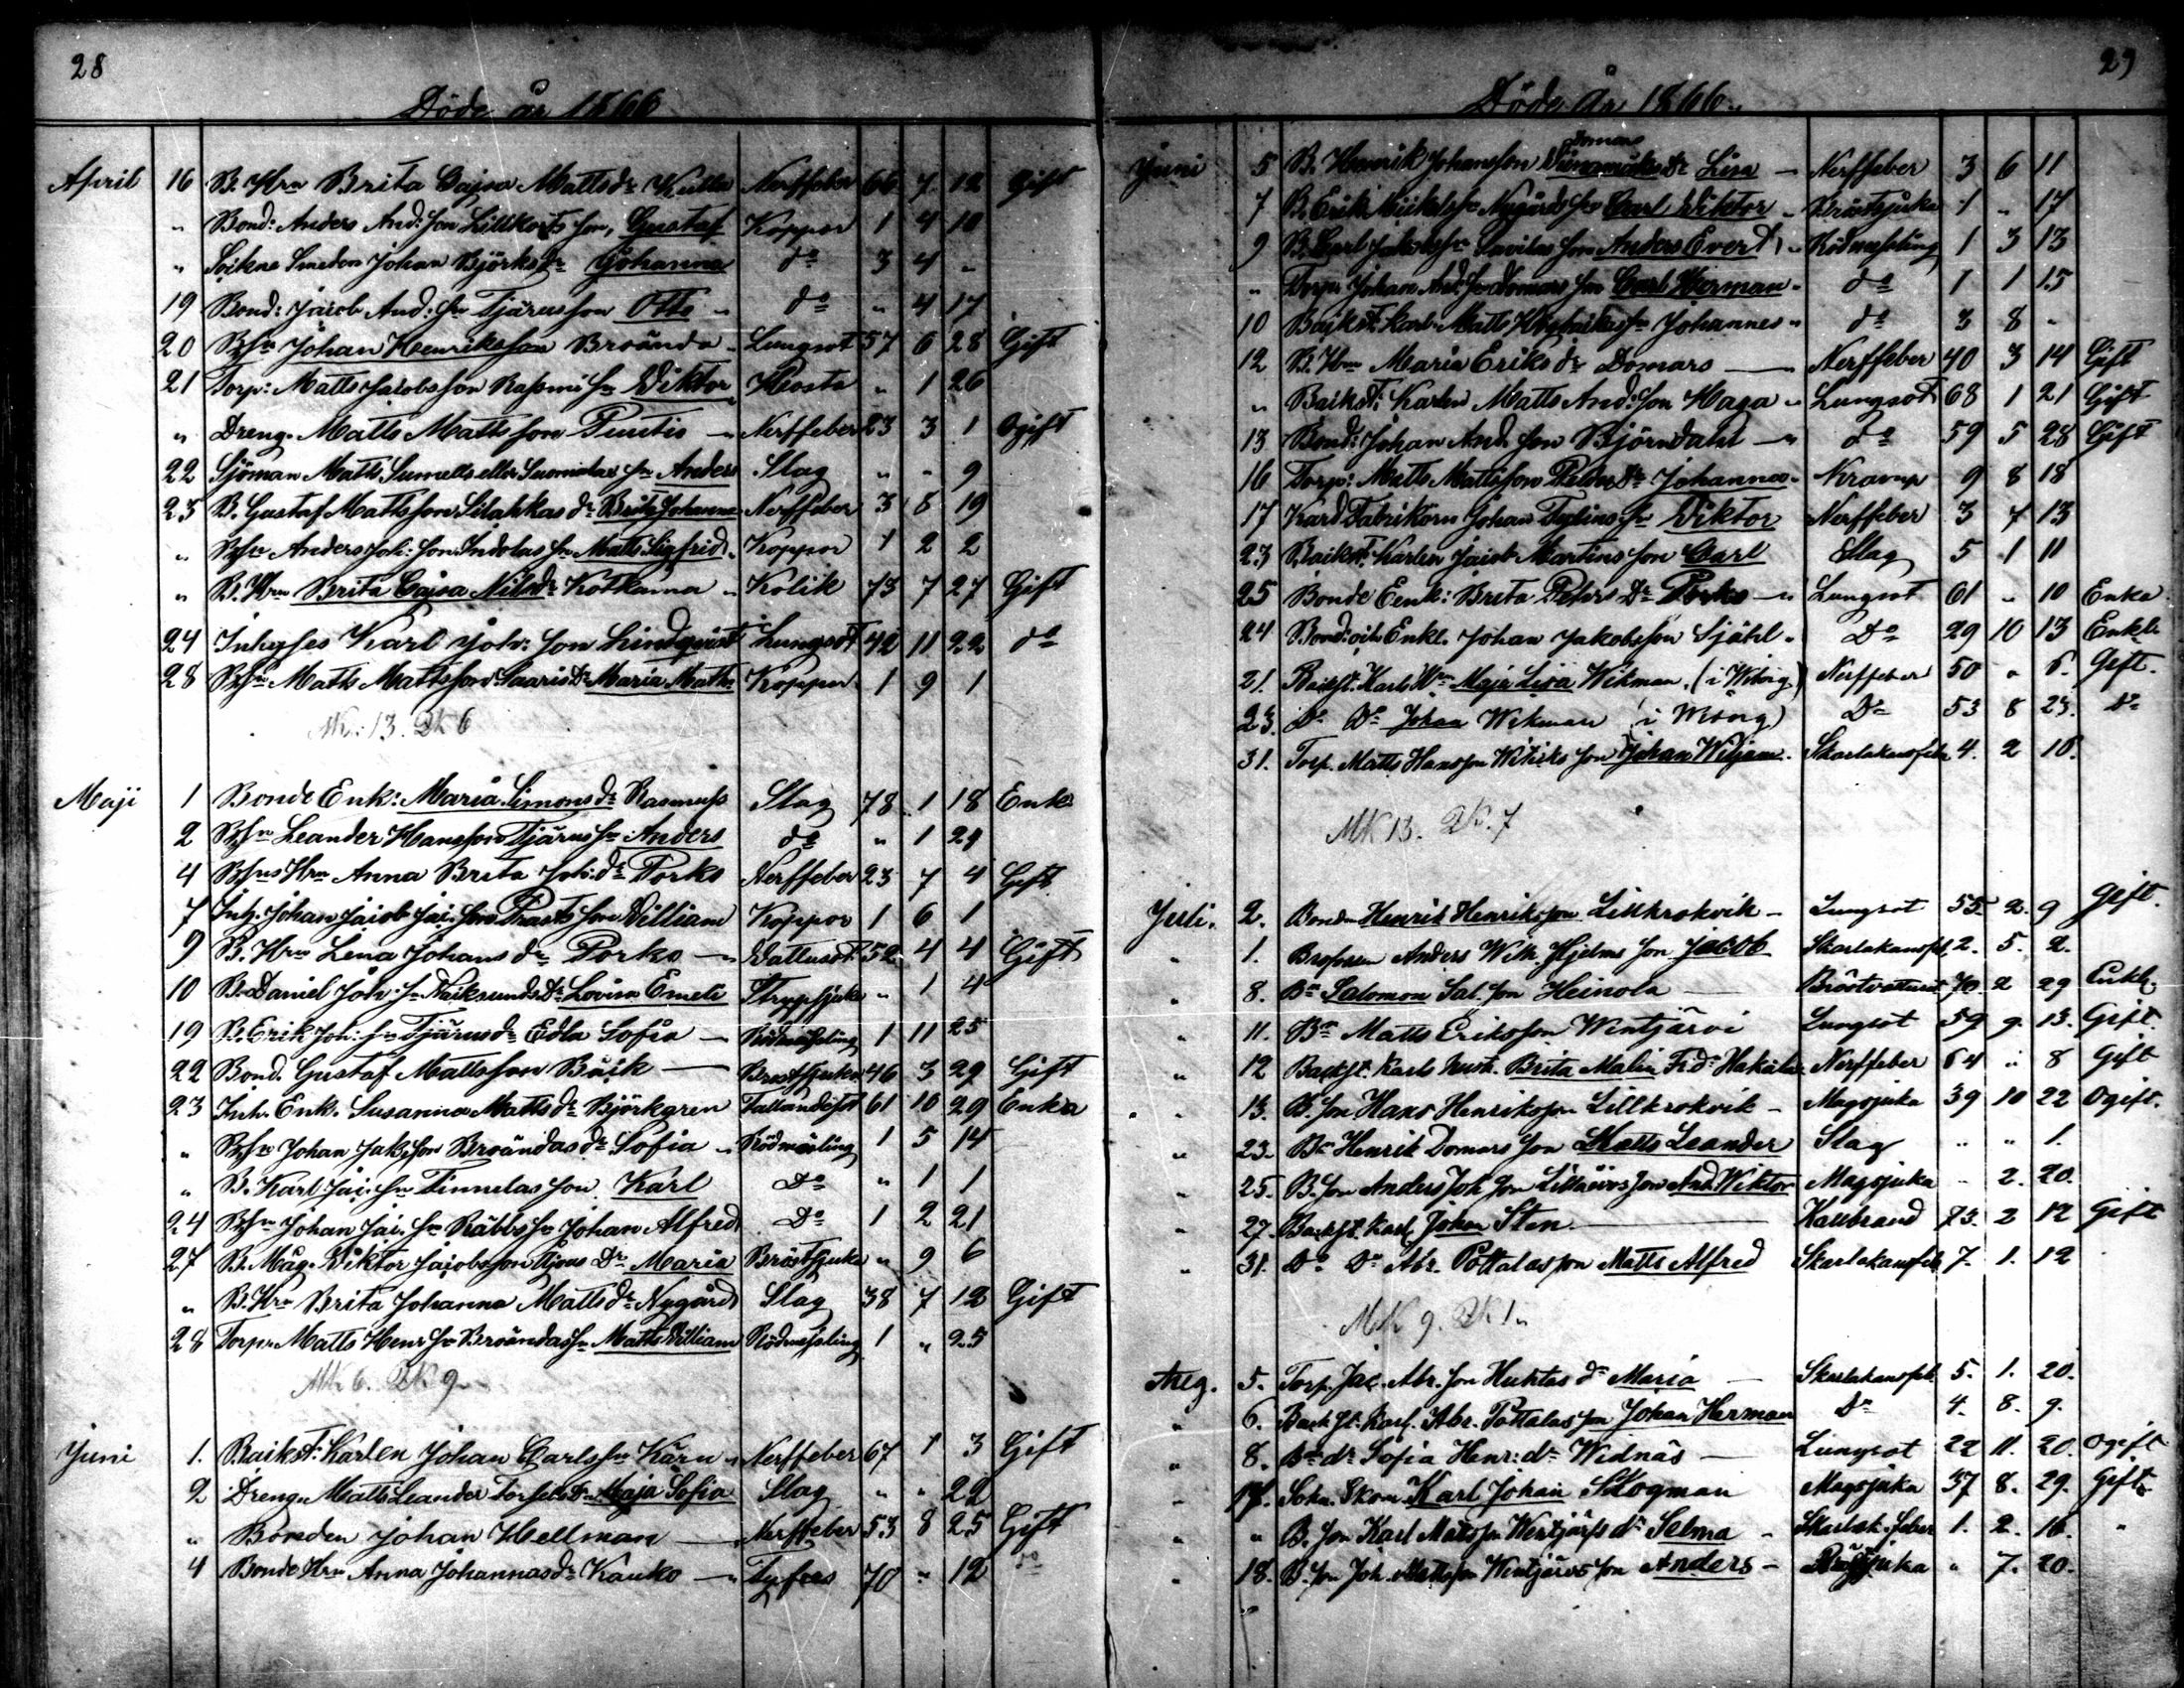 28
Döde år 1866
April 16 B. Hru Brita Cajsa Mattsdr Kulla Nerffeber 66 7 12 Gift
" Bond: Anders And:son Lillkorts son, Gustaf Koppor 1 4 10
" Sockne Smeden Johan Björks dr Johanna do 3 4 "
19 Bond: Jacob And: sn Tjärus son Otto " do " 4 17
20 Bsn Johan Henriksson Broända " Lungsot 57 6 28 Gift
21 Torp: Matts Jacobsson Rasmus sn Viktor Hosta " 1 26
" Dreng. Matts Mattsson Puutio " Nerffeber 23 3 1 Ogift
22 Sjöman Matts Sumells eller Suomelas sn Anders Slag " " 9
23 B. Gustaf Mattsson Lilahkas dr Brita Johanna Nerffeber 3 8 19
" Bsn Anders Joh: son Indolas sn Matts Sigfrid Koppor 1 2 2
" B. Hru Brita Cajsa Nilsdr Kotkama " Kolik 73 7 27 Gift
24 Inhyses Karl Joh: son Lindqvist Lungsot 42 11 22 do
28 Bsn Matts Mattsson Saaris Dr Maria Math: Koppor 1 9 1
Mk: 13. Qk 6
Maji 1 Bonde Enk: Maria Simonsdr Rasmuss Slag 78 1 18 Enk
2 Bsn Leander Hansson Tjärus sn Anders do " 1 24
4 Bsns Hru Anna Brita Joh: dr Porko Nerffeber 23 7 4 Gift
7 Inh. Johan Jacob Jac. son Prasts son William Koppor 1 6 1
9 B. Hru Lena Johans dr Porko " Vattusot 52 4 4 Gift
10 B. Daniel Joh: sn Näiksunds Dr Lovisa Emeli Strypsjuka " 1 4
19 B. Erik Joh: sn Tjärus dr Edla Sofia " Rödmessling 1 11 25
22 Bond. Gustaf Mattsson Bäck Bröstsjuka 46 3 29 Gift
23 Inh. Enk. Susanna Matts dr Björkgren Fallandesot 61 10 29 Enka
" Bsn Johan Jak: son Broändas dr Sofia " Rödmässling 1 5 14
" B. Karl Jac. sn Finnelas son Karl Do " 1 1
24 Bsn Johan Jac. sn Räbbs sn Johan Alfred Do 1 2 21
27 B. Måg. Viktor Jacobsson Dr Maria Bröstsjuka " 9 6
" B. Hru Brita Johanna Matts dr Nygård Slag 38 7 12 Gift
28 Torp. Matts Henr sn Broändas sn Matts William Rödmessling 1 " 25
Mk 6. Qk 9
Juni 1. Backst: Karlen Johan Carlssn Kärn " Nerffeber 67 1 3 Gift
2 Dreng. Matts Leander Dr Maja Sofia Slag " " 22
" Bonden Johan Hellman " Nerffeber 53 8 25 Gift
4 Bonde Hru Anna Johannasdr Kauko " Tyfus 70 " 12 do
29
Döde År 1866.
Domars
Juni 5 B. Henrik Johansson Dr Lisa " Nerffeber 3 6 11
7 B. Erik Mickelss Nygårds son Carl Viktor " Bröstsjuka 1 " 17
9 B. Carl Jakobssn Savilas son Anders Evert " Rödmessling 1 3 13
" Torp. Johan And. sn Domars son Carl Herman " do 1 1 15
10 Backst. Karl Matts sn Johannes " do 3 8 "
12 B. Hru Maria Eriks dr Domars Nerffeber 40 3 14 Gift
" Backst: Karlen Matts And: son Haga " Lungsot 68 1 21 Gift
13 Bond: Johan And. son Björndahl " do 59 5 28 Gift
16 Torp: Matts Mattsson Felder Dr Johanna " Kramp 9 8 18
17 Kard Fabrikorn Johan sn Viktor Nerffeber 3 7 13
23 Backst. Karlen Jacob Martins son Carl Slag 5 1 11
25 Bonde Eenk: Brita Peters Dr Porko " Lungsot 61 " 10 Enka
24 Bond: och Enkl. Johan Jakobsson Sjöhl " Do 29 10 13 Enkl.
21. Backst. Karls Hru Maja Lisa Wikman, (i Wiborg) Nerffeber 50 " 6. Gift.
23. Do Do Johan Wikman Do 53 8 23. Do
31. Torp. Matts Hansson Witicks son Johan Wiljam. Skarlakansfeb. 4. 2 16.
Mk 13. Qk. 7
Juli. 2. Bonden Henrik Henriksson Lillkrokvik " Lungsot 55 2. 9 Gift.
" 1. Anders Wilh. Hjelms son Jacob Skarlakansfeb. 2. 5. 2.
" 8. Bn Salomon Sal. son Heinola Bröstvattusot 70. 2 29 Enkl.
" 11. Bn Matts Eriksson Wintjärvi Lungsot 59 9. 13. Gift.
" 12 Backst. Karls hust. Brita Malin Fr. dr Hakala Nerffeber 64 " 8 Gift
" 13. B. son Hans Henriksson Lillkrokvik " Magsjuka 39 10 22 Ogift.
" 23. Bn Henrik Domars son Matts Leander Slag " " 1.
" 25. B. son Anders Joh. son son And. Wiktor Magsjuka " 2. 20.
" 27. Backst. Karl Johan Sten Kallbrand 73. 2 12 Gift
" 31. Do Do Abr. Pottalas son Matts Alfred Skarlakansfeb. 7. 1. 12
Mk 9. Qk 1.
Aug. 5. Torp. Jac. Abr. son Huhtas dr Maria Skarlakansfeb. 5. 1. 20.
" 6. Backst. Karl. Abr. Pottalas son Johan Herman Do 4. 8. 9.
" 8. Bn dr Sofia Henr: dr Widnäs Lungsot 22 11. 20. Ogift
" 17. Sokn. Skom. Karl Johan Skogman Magsjuka 37 8. 29. Gift
" " B. son Karl Matsson Wentjärfs dr Selma " Skarlak. feber 1. 2. 16. "
" 18. B. son Joh. Mattsson Wintjärvs son Anders " Bröstsjuka " 7. 20.